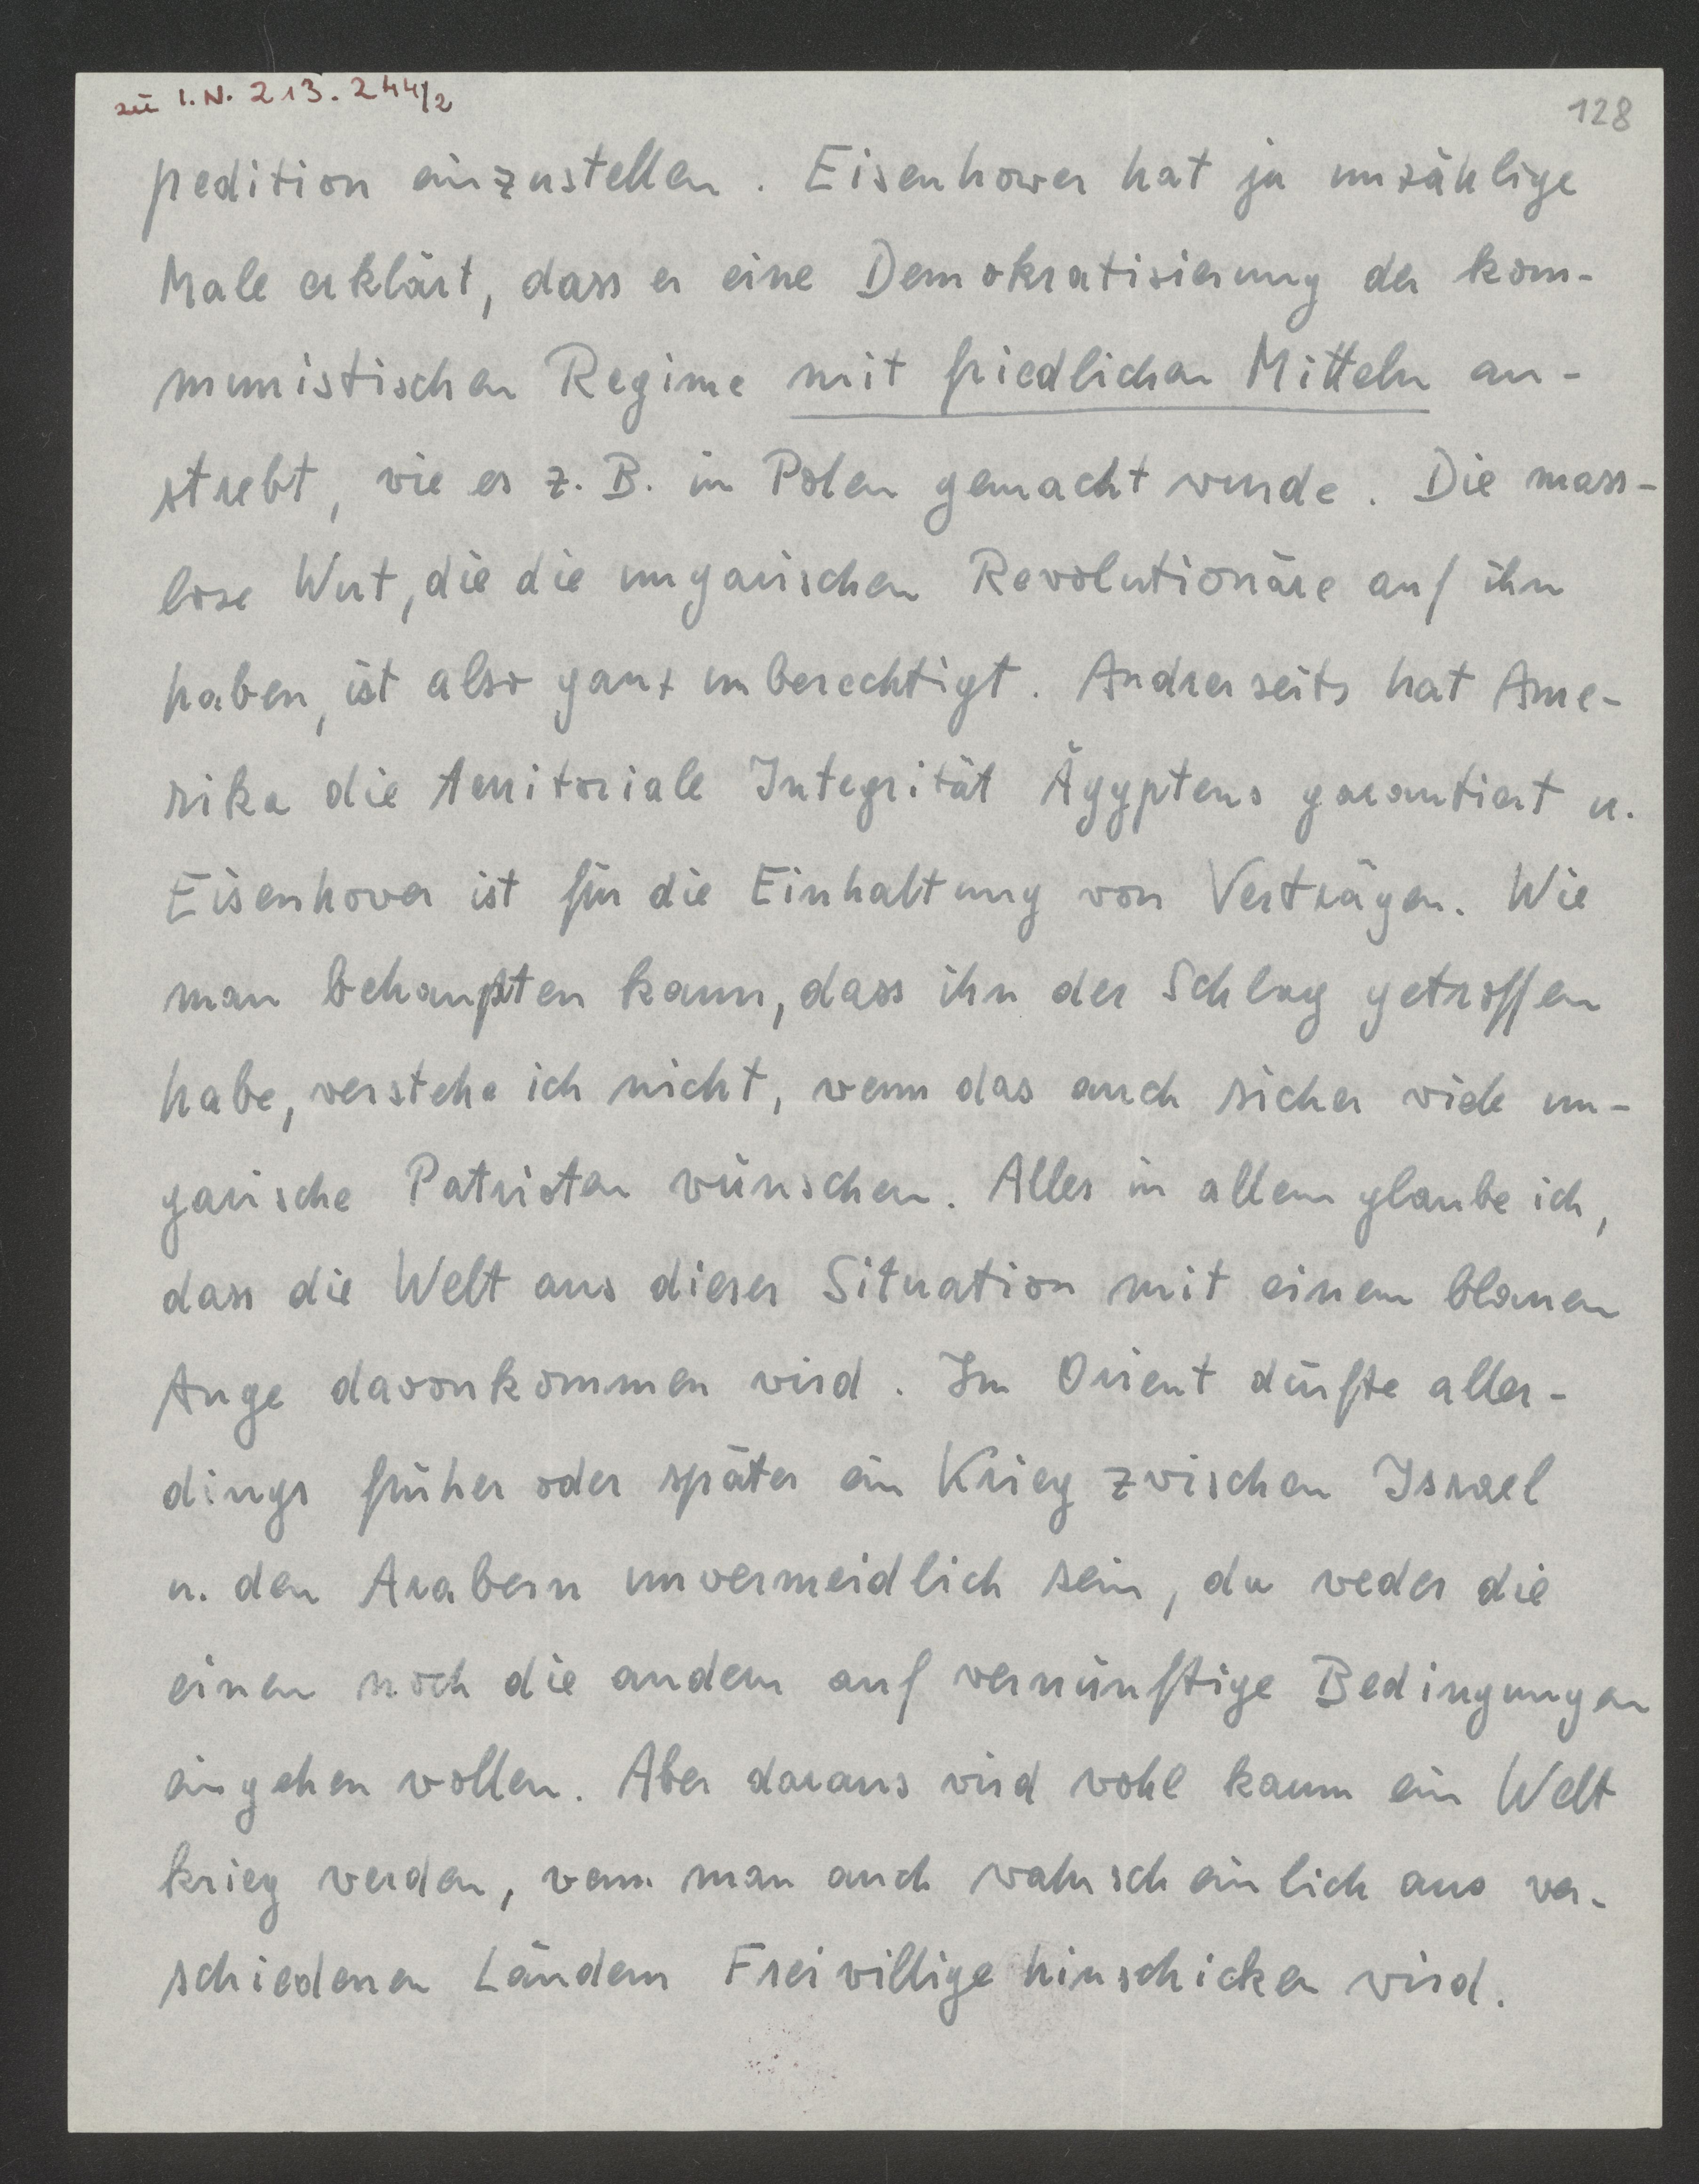 zu I.N. 213.244/2
128
pedition einzustellen. Eisenhower hat ja unzählige
Male erklärt, dass er eine Demokratisierung der kom-
munistischen Regime mit friedlichen Mitteln an-
strebt, wie es z. B. in Polen gemacht wurde. Die mass-
lose Wut, die die ungarischen Revolutionäre auf ihn
haben, ist also ganz unberechtigt. Andrerseits hat Ame-
rika die territoriale Integrität Ägyptens garantiert u.
Eisenhower ist für die Einhaltung von Verträgen. Wie
man behaupten kann, dass ihn der Schlag getroffen
habe, verstehe ich nicht, wenn das auch sicher viele un-
garische Patrioten wünschen. Alles in allem glaube ich,
dass die Welt aus dieser Situation mit einem blauen
Auge davonkommen wird. Im Orient dürfte aller-
dings früher oder später ein Krieg zwischen Israel
u. den Arabern unvermeidlich sein, da weder die
einen noch die andern auf vernünftige Bedingungen
eingehen wollen. Aber daraus wird wohl kaum ein Welt
krieg werden, wenn man auch wahrscheinlich aus ver-
schiedenen Ländern Freiwillige hinschicken wird.